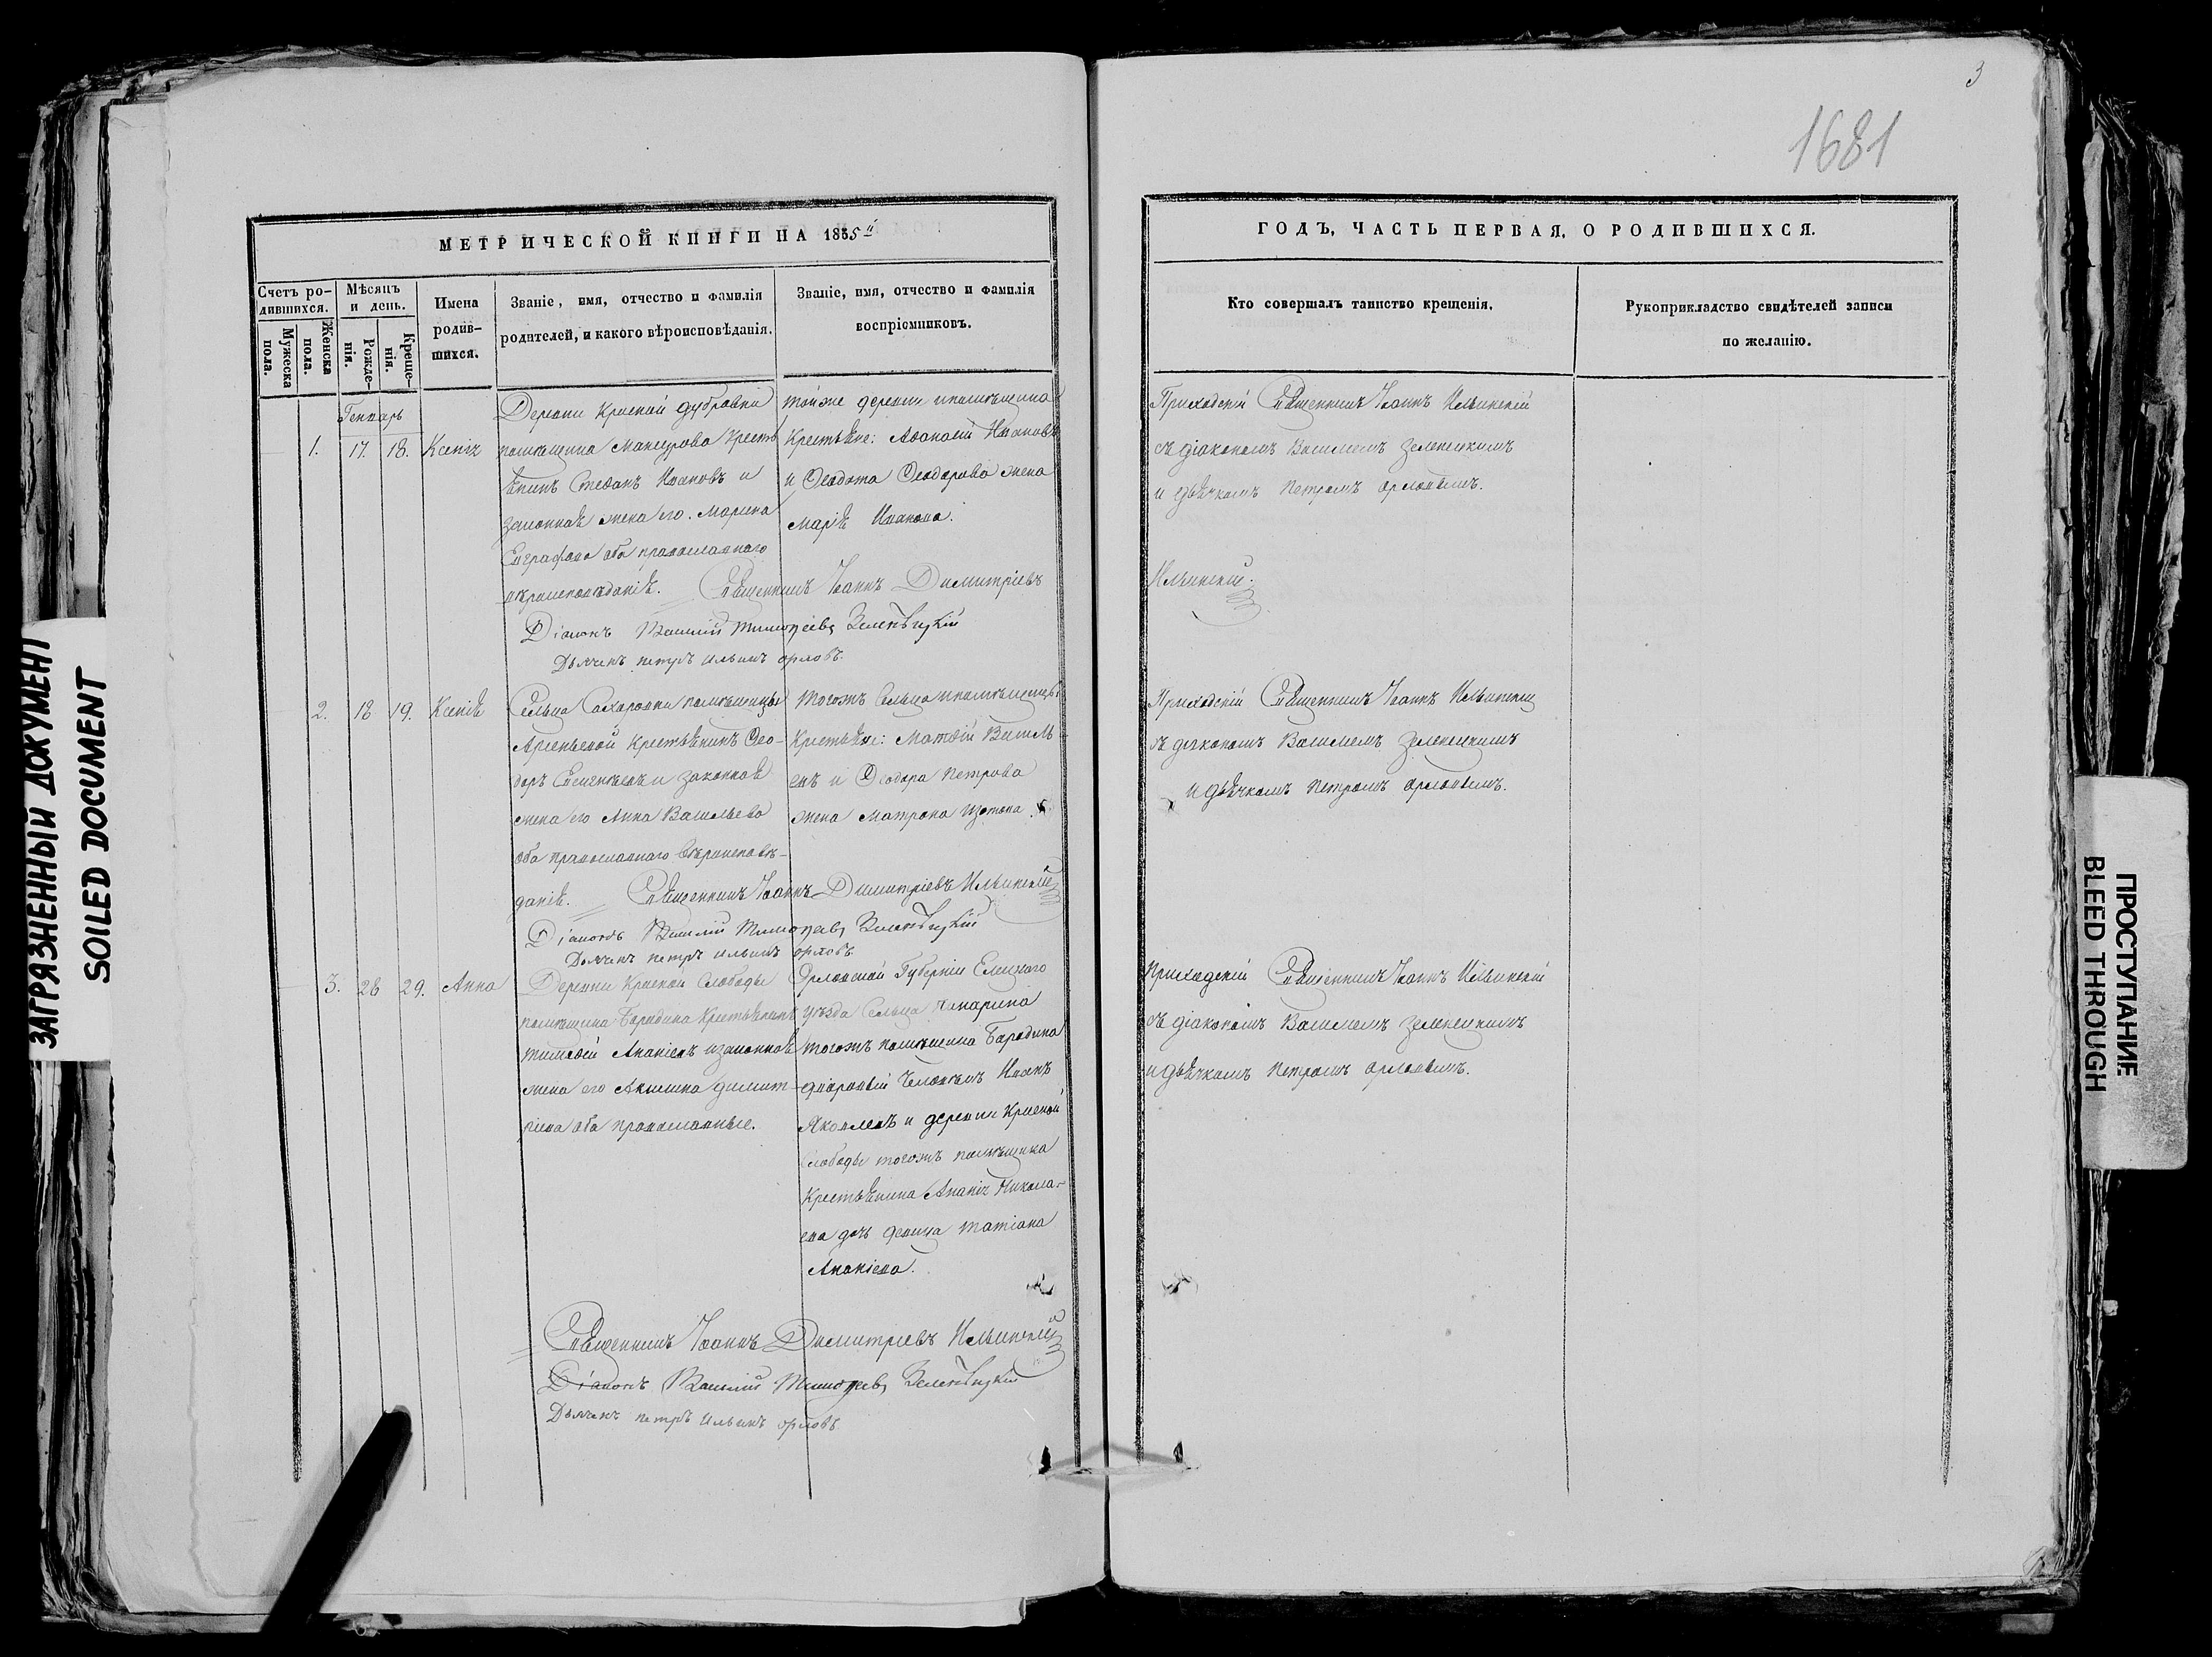 3
1681
МЕТРИЧЕСКОЙ КНИГИ НА 1835й
Счетъ родившихся.
Мужеска пола.
Женска пола.
Мѣсяцъ и день.
Рожденія.
Крещенія.
Имена родившихся.
Званіе, имя, отчество и фамилія
родителей, и какого вѣроисповѣданія.
Званіе, имя, отчество и фамилія
воспріемниковъ.
Генварь
1. 17. 18. Ксенія
Деревни Красной дубровки
помѣщика Мансурова Кресть
янинъ Стефанъ Ивановъ и
законная жена его Марина
Евграфова оба православнаго
вѣроисповѣданія.
тойже деревни ипомѣщика
Крестьяне: Афанасій Ивановъ
и Феодота Феодорова жена
марія Иванова.
Священникъ Іоаннъ Димитріевъ
Діаконъ Василій Тимофеевъ Зеленѣцкій
Дьячекъ петръ ильинъ орловъ.
2. 18 19. Ксенія
Сельца Сахаровки помѣщицы
Арсеньевой Крестьянинъ Фео-
доръ Евсигнѣевъ и законная
жена его Анна Васильева
оба православнаго вѣроисповѣ-
данія.
тогожъ Сельца ипомѣщицы
Крестьяне: Матфій Василь
евъ и Феодора Петрова
жена матрона Изотова
Священникъ Іоаннъ Димитріевъ Ильинскій
Діаконъ Василій Тимофеевъ Зеленѣцкій
Дьячекъ петръ ильинъ орловъ
3. 28 29. Анна
Деревни Красной Слободы
помѣщика Бородина Крестьянинъ
тимофей Ананіевъ изаконная
жена его Акилина димит-
ріева оба православные.
Орловской Губерніи Елецкаго
уѣзда Сельца
тогожъ помѣщика Бородина
дворовый Человѣкъ Иванъ
Яковлевъ и деревни Красной
Слободы тогожъ помѣщика
Крестьянина Ананія Никола-
ева дочь девица татіана
Ананіева.
Священникъ Іоаннъ Димитріевъ Ильинскій
Діаконъ Василій Тимофеевъ Зеленѣцкій
Дьячекъ петръ ильинъ орловъ
ГОДЪ, ЧАСТЬ ПЕРВАЯ, О РОДИВШИХСЯ.
Кто совершалъ таинство крещенія.
Рукоприкладство свидѣтелей записи
по желанію.
Приходскій Священникъ Іоаннъ Ильинскій
съ діакономъ Василіемъ Зеленецкимъ
и дьячкомъ Петромъ Орловымъ.
Ильинскій.
Приходскій Священникъ Іоаннъ Ильинскій
съ діакономъ Василіемъ Зеленецкимъ
и дьячкомъ Петромъ Орловымъ.
Приходскій Священникъ Іоаннъ Ильинскій
съ діакономъ Василіемъ Зеленецкимъ
и дьячкомъ Петромъ Орловымъ.
ЗАГРЯЗНЕННЫЙ ДОКУМЕНТ
SOILED DOCUMENT
ПРОСТУПАНИЕ
BLEED THROUGH